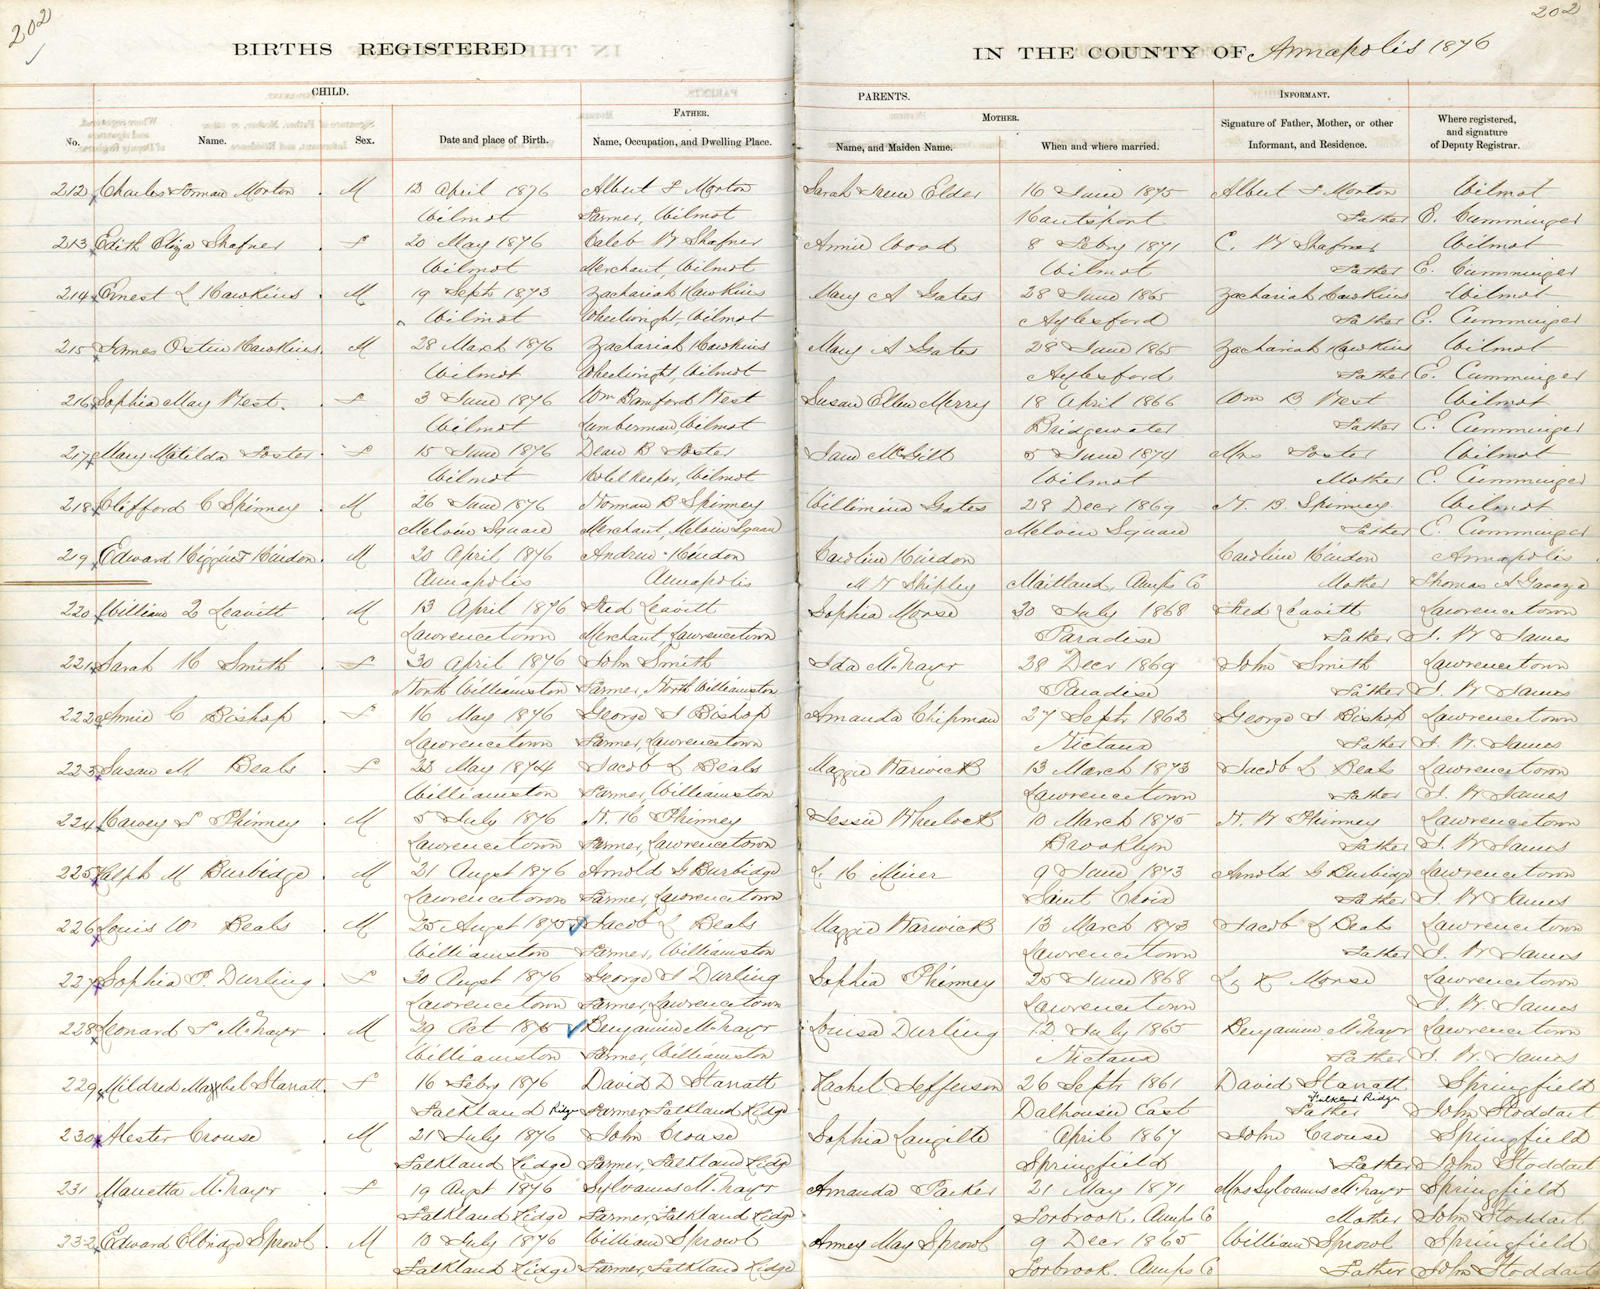 202
202
BIRTHS REGISTERED IN THE COUNTY OF Annapolis 1876
CHILD. PARENTS. INFORMANT.
FATHER. MOTHER.
No. Name. Sex. Date and place of Birth. Name, Occupation, and Dwelling Place. Name, and Maiden Name. When and where married. Signature of Father, Mother, or other Informant, and Residence. Where registered, and signature of Deputy Registrar.
212 Charles Forman Morton M 13 April 1876 Albert F Morton Sarah Irene Elder 16 June 1875 Albert F Morton Wilmot
Wilmot Farmer, Wilmot Hantsport Father E. Cumminger
213 Edith Eliza Shafner F 20 May 1876 Caleb W Shafner Annie Wood 8 Feby 1871 C. W Shafner Wilmot
Wilmot Merchant, Wilmot Wilmot Father E. Cumminger
214 Ernest L Hawkins M 19 Septr 1873 Zachariah Hawkins Mary A Gates 28 June 1865 Zachariah Hawkins Wilmot
Wilmot Wheelwright, Wilmot Aylesford Father E. Cumminger
215 James Osten Hawkins M 28 March 1876 Zachariah Hawkins Mary A Gates 28 June 1865 Zachariah Hawkins Wilmot
Wilmot Wheelwright, Wilmot Aylesford Father E. Cumminger
216 Sophia May West F 3 June 1876 Wm Bamford West Susan Ellen Merry 18 April 1866 Wm B West Wilmot
Wilmot Lumberman, Wilmot Bridgewater Father E. Cumminger
217 Mary Matilda Foster F 15 June 1876 Dean B Foster Jane McGill 5 June 1874 Mrs Foster Wilmot
Wilmot Hotel Keeper, Wilmot Wilmot Mother E. Cumminger
218 Clifford C Spinney M 26 June 1876 Norman B Spinney Willimina Gates 28 Decr 1869 N. B. Spinney Wilmot
Melvin Square Merchant, Melvin Square Melvin Square Father E. Cumminger
219 Edward Higgins Hindon M 23 April 1876 Andrew Hindon Caroline Hindon Caroline Hindon Annapolis
Annapolis Annapolis M N Shipley Maitland, Annps Co Mother Thomas A Gavaza
220 William Z Leavitt M 13 April 1876 Fred Leavitt Sophia Morse 30 July 1868 Fred Leavitt Lawrencetown
Lawrencetown Merchant, Lawrencetown Paradise Father J. W James
221 Sarah H Smith F 30 April 1876 John Smith Ida McNayr 28 Decr 1869 John Smith Lawrencetown
North Williamston Farmer, North Williamston Paradise Father J. W James
222 Annie C Bishop F 16 May 1876 George J Bishop Amanda Chipman 27 Septr 1862 George J Bishop Lawrencetown
Lawrencetown Farmer, Lawrencetown Nictaux Father J. W. James
223 Susan M Beals F 23 May 1874 Jacob L Beals Maggie Warwick 13 March 1873 Jacob L Beals Lawrencetown
Williamston Farmer, Williamston Lawrencetown Father J. W James
224 Harvey S Phinney M 5 July 1876 N. H Phinney Jessie Wheelock 10 March 1875 N. W Phinney Lawrencetown
Lawrencetown Farmer, Lawrencetown Brooklyn Father J. W James
225 Ralph M Burbidge M 21 August 1876 Arnold G Burbidge L. H Miner 9 June 1873 Arnold G Burbidge Lawrencetown
Lawrencetown Farmer, Lawrencetown Saint Croix Father J. W James
226 Louis W Beals M 25 August 1875 Jacob L Beals Maggie Warwick 13 March 1873 Jacob L Beals Lawrencetown
Williamston Farmer, Williamston Lawrencetown Father J. W James
227 Sophia P. Durling F 30 Augst 1876 George J Durling Sophia Phinney 25 June 1868 L. K Morse Lawrencetown
Lawrencetown Farmer, Lawrencetown Lawrencetown J. W. James
228 Leonard F McNayr M 29 Oct 1875 Benjamin McNayr Louisa Durling 12 July 1865 Benjamin McNayr Lawrencetown
Williamston Farmer, Williamston Nictaux Father J. W. James
229 Mildred Maybel Starratt F 16 Feby 1876 David D Starratt Rachel Jefferson 26 Septr 1861 David Starratt Springfield
Falkland Ridge Farmer, Falkland Ridge Dalhousie East Falkland Ridge Father John Stoddart
230 Alester Crouse M 21 July 1876 John Crouse Sophia Langille April 1867 John Crouse Springfield
Falkland Ridge Farmer, Falkland Ridge Springfield Father John Stoddart
231 Marietta McNayr F 19 Augst 1876 Sylvanus McNayr Amanda Parker 21 May 1871 Mrs Sylvanus McNayr Springfield
Falkland Ridge Farmer, Falkland Ridge Torbrook, Annps Co Mother John Stoddart
232 Edward Elbridge Sprowl M 10 July 1876 William Sprowl Anney May Sprowl 9 Decr 1865 William Sprowl Springfield
Falkland Ridge Farmer, Falkland Ridge Torbrook. Annps Co Father John Stoddart